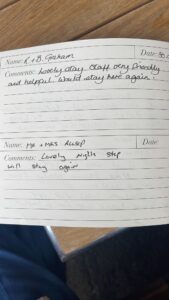 Name: K + B Graham Date: 30
Comments: Lovely stay. Staff very friendly
and helpful. Would stay here again.
Name: Mr + Mrs Date:
Comments: Lovely nights stop
will stay again